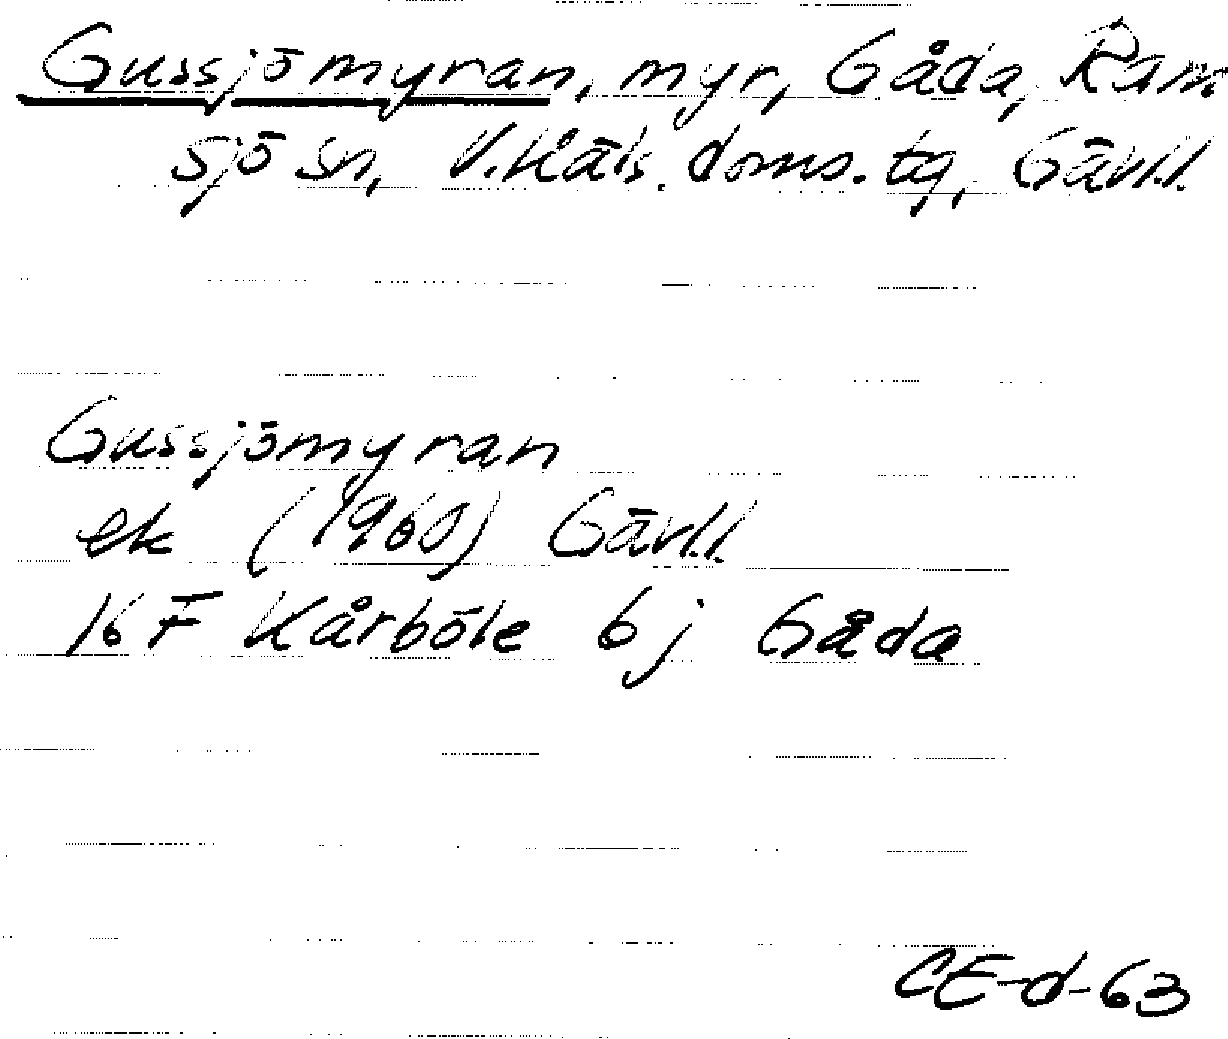 Gussjömyran, myr, Gåda, Ram
sjö sn, V. Häls. doms. tg, Gävl.l.
Gussjömyran
ek (1960) Gävl.l.
16 F Kårböle 6 j Gåda
CE-d-63